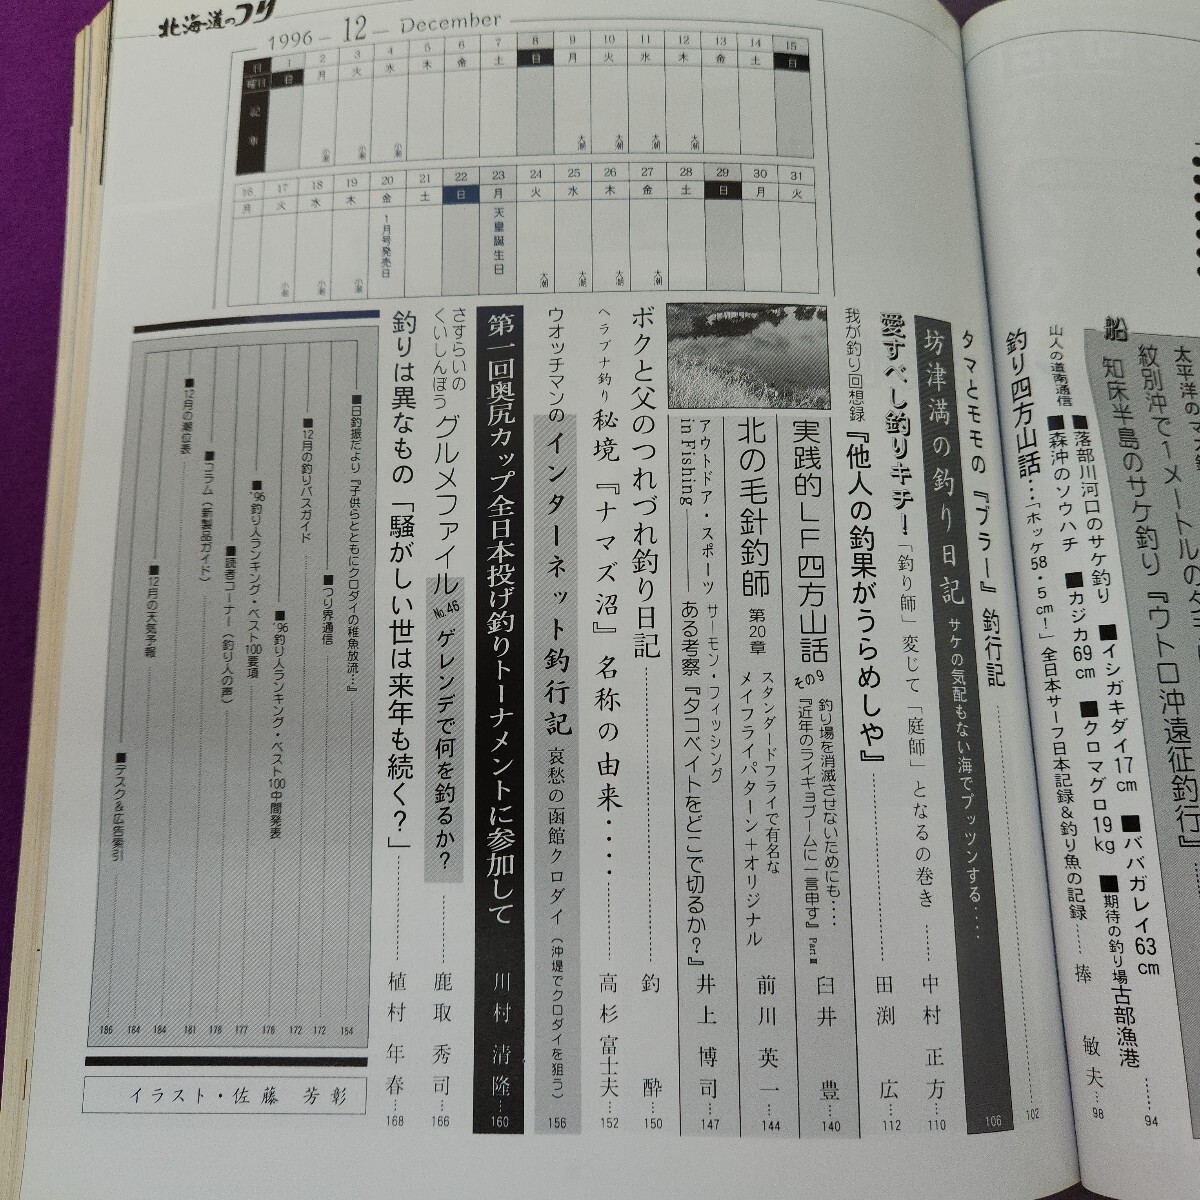 北海道のつり
1996 — 12 — December
日 1 2 3 4 5 6 7 8 9 10 11 12 13 14 15
曜日 日 月 火 水 木 金 土 日 月 火 水 木 金 土 日
記事 小潮 小潮 小潮 大潮 大潮 大潮 大潮
16 17 18 19 20 21 22 23 24 25 26 27 28 29 30 31
月 火 水 木 金 土 日 月 火 水 木 金 土 日 月 火
小潮 小潮 小潮 1月号発売日 天皇誕生日 大潮 大潮 大潮 大潮
太平洋のマ
紋別沖で1メートルの
船 知床半島のサケ釣り『ウトロ沖遠征釣行』…… 94
山人の道南通信 ■落部川河口のサケ釣り ■イシガキダイ17cm ■ババガレイ63cm
■森沖のソウハチ ■カジカ69cm ■クロマグロ19kg ■期待の釣り場古部漁港
釣り四方山話…「ホッケ58・5cm！」全日本サーフ日本記録&釣り魚の記録……捧 敏夫…98
タマとモモの『ブラー』釣行記…… 102
坊津満の釣り日記 サケの気配もない海でプッツンする…… 106
愛すべし釣りキチ！「釣り師」変じて「庭師」となるの巻き……中村 正方…110
我が釣り回想録『他人の釣果がうらめしや』……田渕 広…112
実践的LF四方山話 その9 釣り場を消滅させないためにも…… 『近年のライギョブームに一言申す』PartⅢ 臼井 豊…140
北の毛針釣師 第20章 スタンダードフライで有名な メイフライパターン＋オリジナル 前川 英一…144
アウトドア・スポーツ in Fishing サーモン・フィッシング ある考察『タコベイトをどこで切るか？』井上 博司…147
ボクと父のつれづれ釣り日記……釣 酔…150
ヘラブナ釣り 秘境『ナマズ沼』名称の由来……高杉 富士夫…152
ウオッチマンのインターネット釣行記 哀愁の函館クロダイ（沖堤でクロダイを狙う）156
第一回奥尻カップ全日本投げ釣りトーナメントに参加して 川村 清隆…160
さすらいのくいしんぼう グルメファイル No.46 ゲレンデで何を釣るか？ 鹿取 秀司…166
釣りは異なもの「騒がしい世は来年も続く？」……植村 年春…168
■日釣振だより『子供らとともにクロダイの稚魚放流…』 154
■つり界通信 172
■12月の釣りバスガイド 172
■'96釣り人ランキング・ベスト100中間発表 176
■'96釣り人ランキング・ベスト100要項 177
■読者コーナー（釣り人の声） 178
■コラム〈新製品ガイド〉 181
■12月の潮位表 184
■12月の天気予報 184
■デスク&広告索引 186
イラスト・佐藤 芳彰